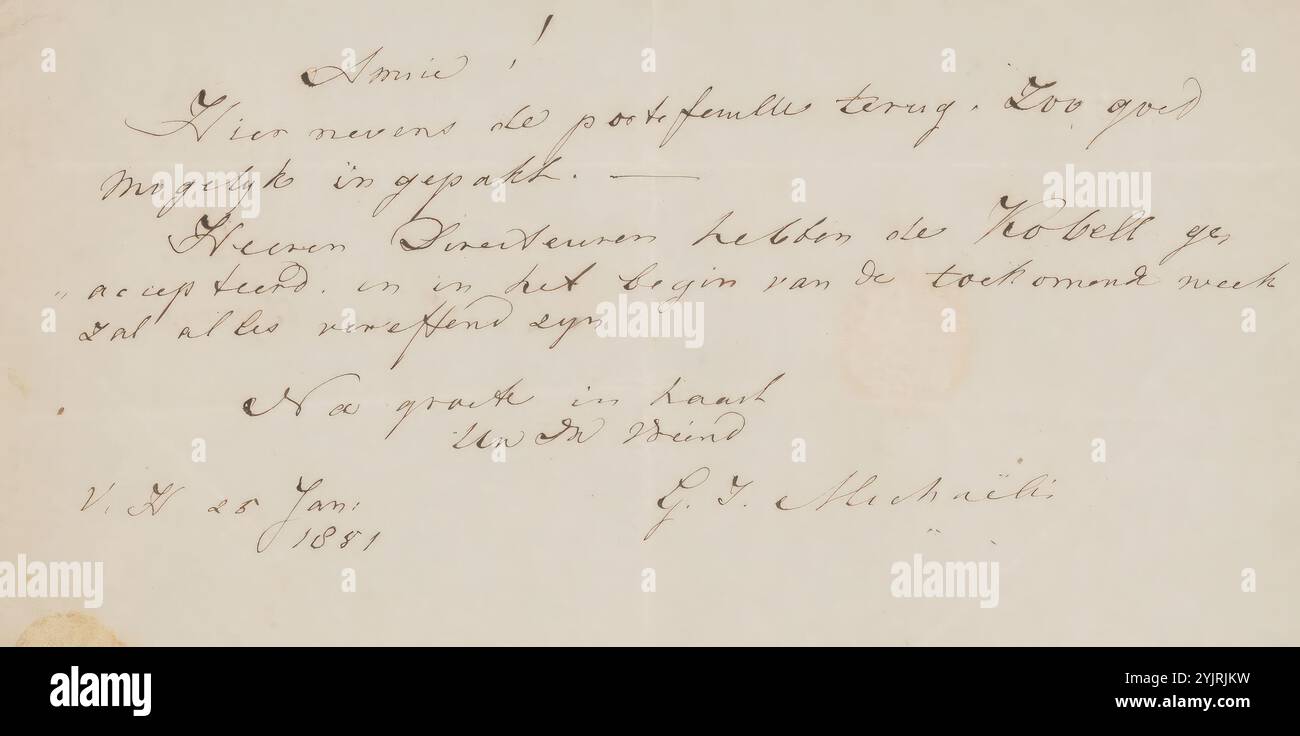 Amice !
Hier nevens de portefeuille terug. Zoo goed
mogelyk ingepakt. —
Heeren Directeuren hebben de Kobell ge„
„accepteerd. en in het begin van de toekomende week
zal alles vereffend zyn
Na groete in haast
Uw Vriend
V. H 25 Jan:
1851
G. J. Michaëlis
alamy
alamy
alamy
alamy
alamy
Image ID: 2YJRJKW
www.alamy.com